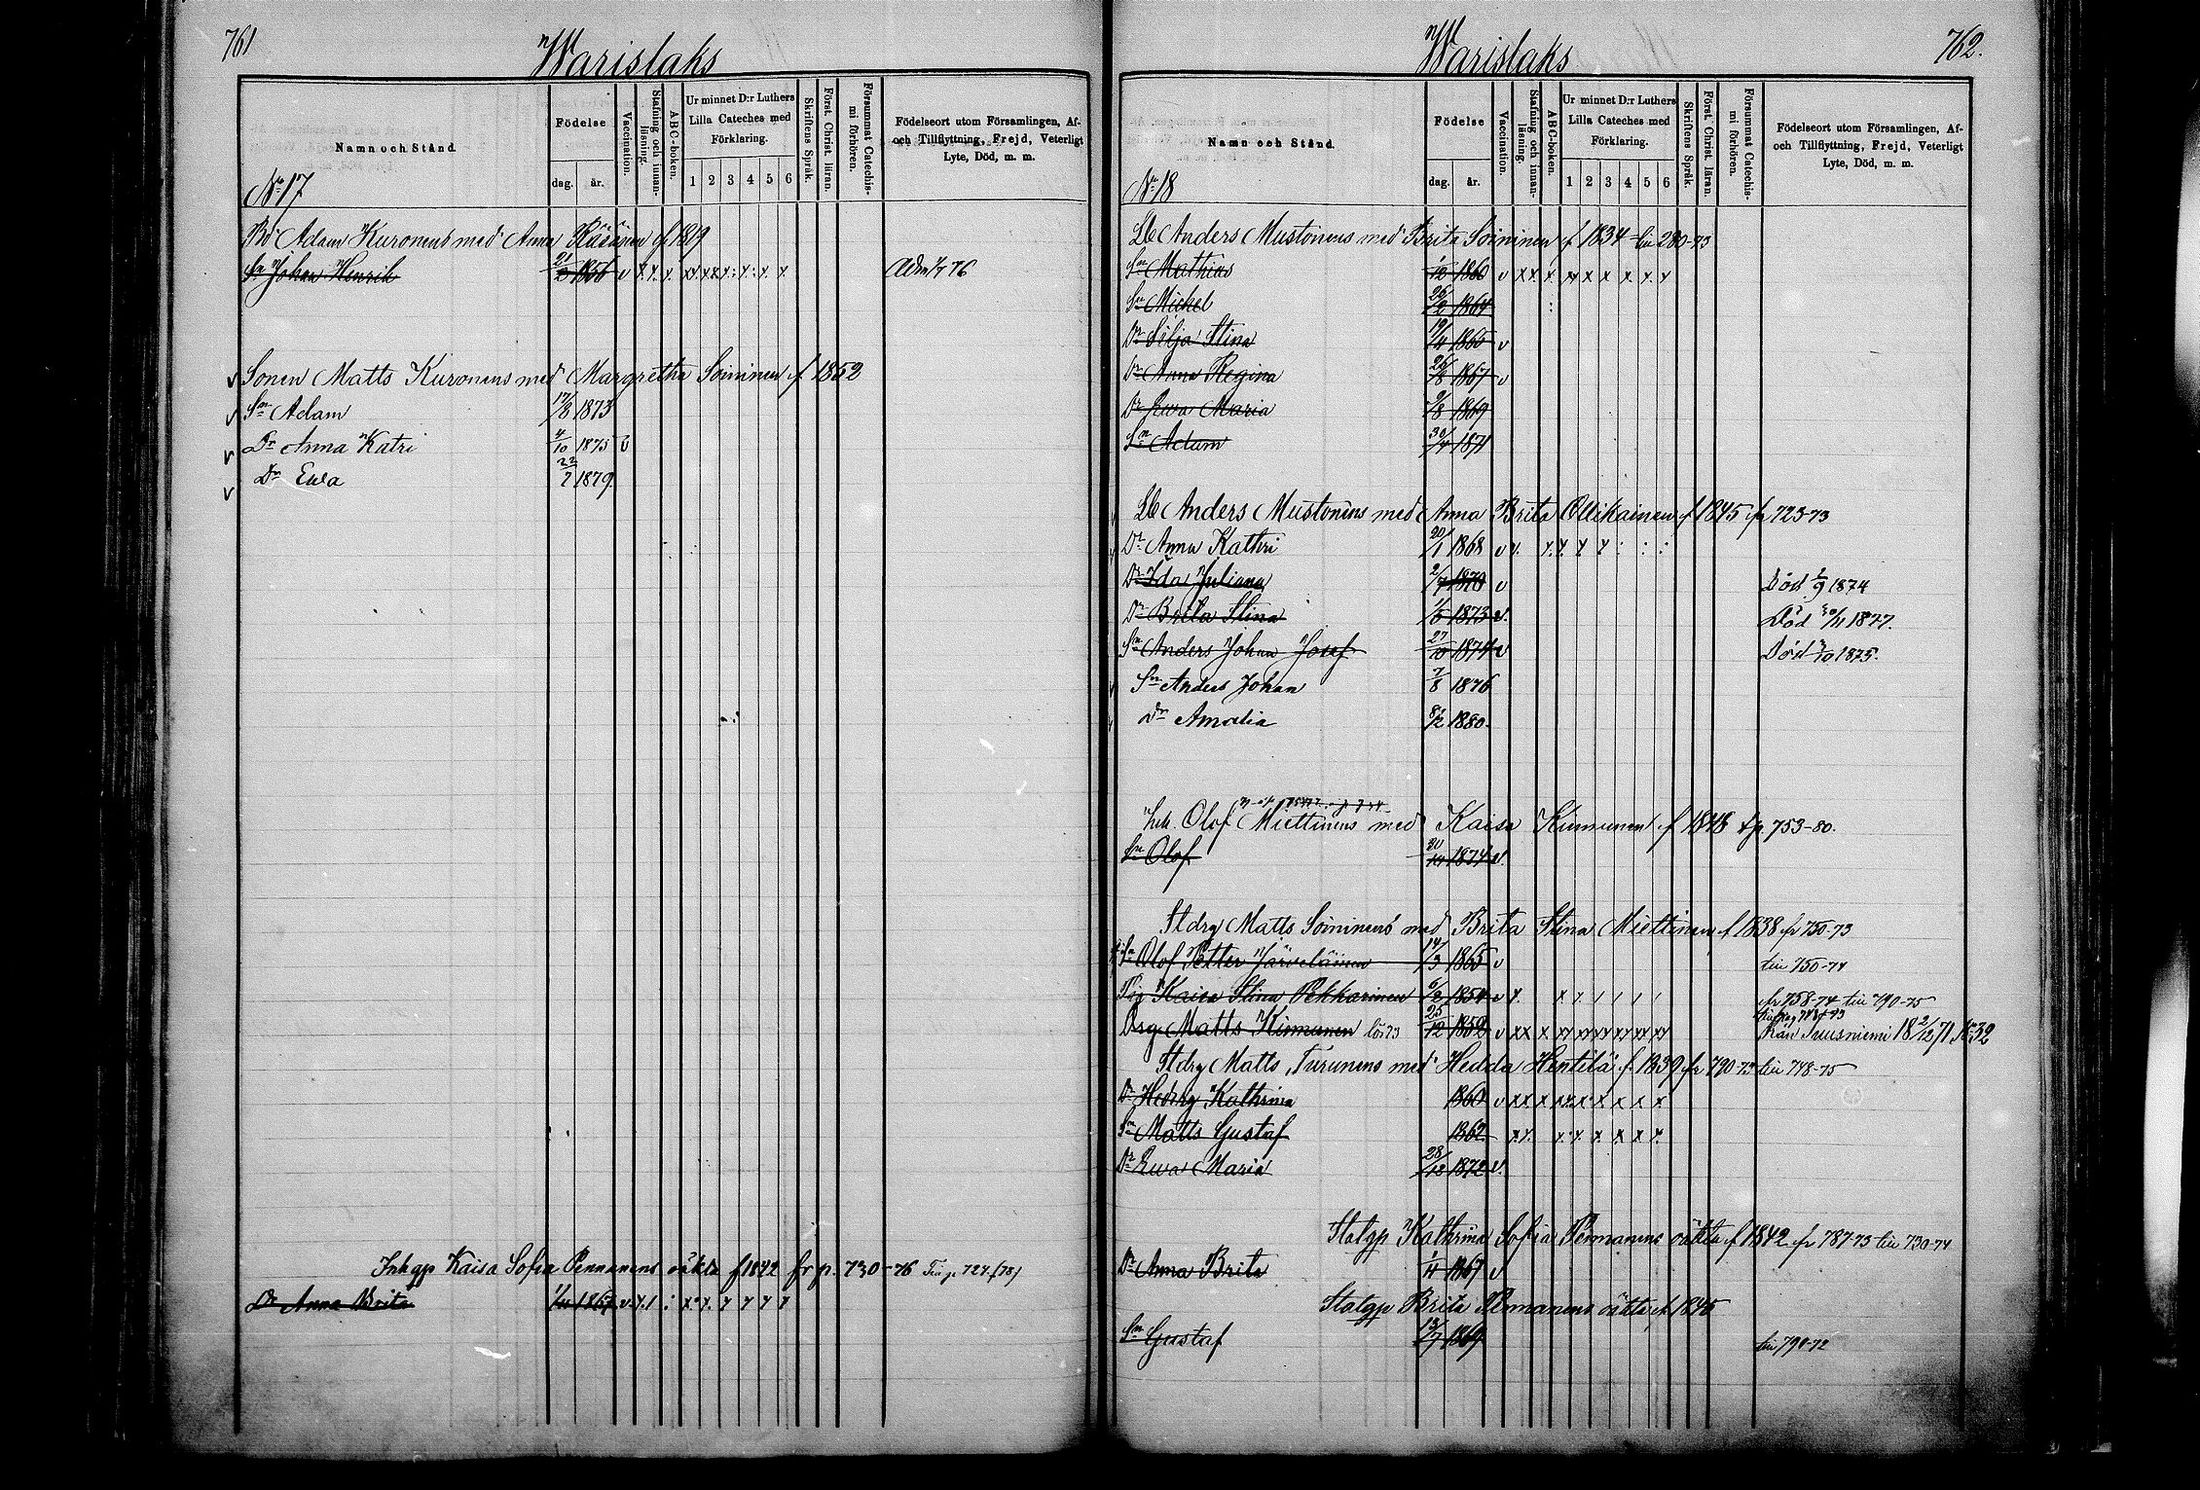 761
Warislaks
Namn och Stånd.
Födelse
dag. år.
Vaccination.
Stafning och innan-läsning.
ABC-boken.
Ur minnet D:r Luthers Lilla Cateches med Förklaring.
1 2 3 4 5 6
Skriftens Språk.
Först. Christ. läran.
Försummat Catechis-mi förhören.
Födelseort utom Församlingen, Af-
och Tillflyttning, Frejd, Veterligt
Lyte, Död, m. m.
No 17
Adam Kuronens med Anna Räsänen f 1819
Sn Johan Henrik 21/2 1856 v Adm 1/7 76
v Sonen Matts Kuronens med Margretha Soininen f 1852
v Sn Adam 17/8 1873
v Dr Anna Katri 4/10 1875 v
v Dr Ewa 22/7 1879
Inhgp Kaisa Sofia Pennanens oäkta f 1842 fr p. 730-76
Dr Anna Brita 1/11 1867 v
762.
Warislaks
Namn och Stånd.
Födelse
dag. år.
Vaccination.
Stafning och innan-läsning.
ABC-boken.
Ur minnet D:r Luthers Lilla Cateches med Förklaring.
1 2 3 4 5 6
Skriftens Språk.
Först. Christ. läran.
Försummat Catechis-mi förhören.
Födelseort utom Församlingen, Af-
och Tillflyttning, Frejd, Veterligt
Lyte, Död, m. m.
No 18
Lb Anders Mustonens med Brita Soininen f 1834 till 280-73
Sn Mathias 1860 v x x x x x x x x x
Sn Michel 26/2 1864
Dr Silja Stina 19/4 1865 v
Dr Anna Regina 26/8 1867 v
Dr Ewa Maria 9/8 1869
Sn Adam 30/4 1871
Lb Anders Mustonens med Anna Brita Ollikainen f 1845 fr 723-73
Dr Anna Kathri 20/1 1868 v
Dr Ida Juliana 2/7 1870 v Död 1/9 1874
Dr Brita Stina 1/5 1873 v. Död 30/11 1877.
Sn Anders Johan Josef 27/10 1874 v Död 1875.
Sn Anders Johan 7/8 1876
Dr Amalia 8/2 1880.
Inh. Olof Miettinens med Kaisa Kinnunen f 1848 t p 753-80.
Sn Olof 30/10 1874 v.
Stdrg Matts Soininens med Brita Stina Miettinen f 1838 fr 750-73
Sn Olof Petter Järveläinen 14/3 1865 v till 750-74
Pig Kaisa Stina Pekkarinen 6/2 1854 v x. x x / / / / fr 758-74 till 790-75
Drg Matts Kinnunen lös 73 25/12 1852 v xx x xx xx xx xx xx xx från Tuusniemi 18 2/12 71 No 32
Stdrg Matts Turunens med Hedda Hentilä f. 1839 fr 790-73 till 748-75
Dr Hedvig Kathrina 1860 v
Sn Matts Gustaf 1862
Dr Ewa Maria 28/12 1872 v.
Statgp Kathrina Sofia Pennanens oäkta f 1842 fr 787-73 till 730-74
Dr Anna Brita 1/11 1867 v
Statgp Brita Pennanens oäkta f. 1845
Sn Gustaf 13/7 1869 till 790-72